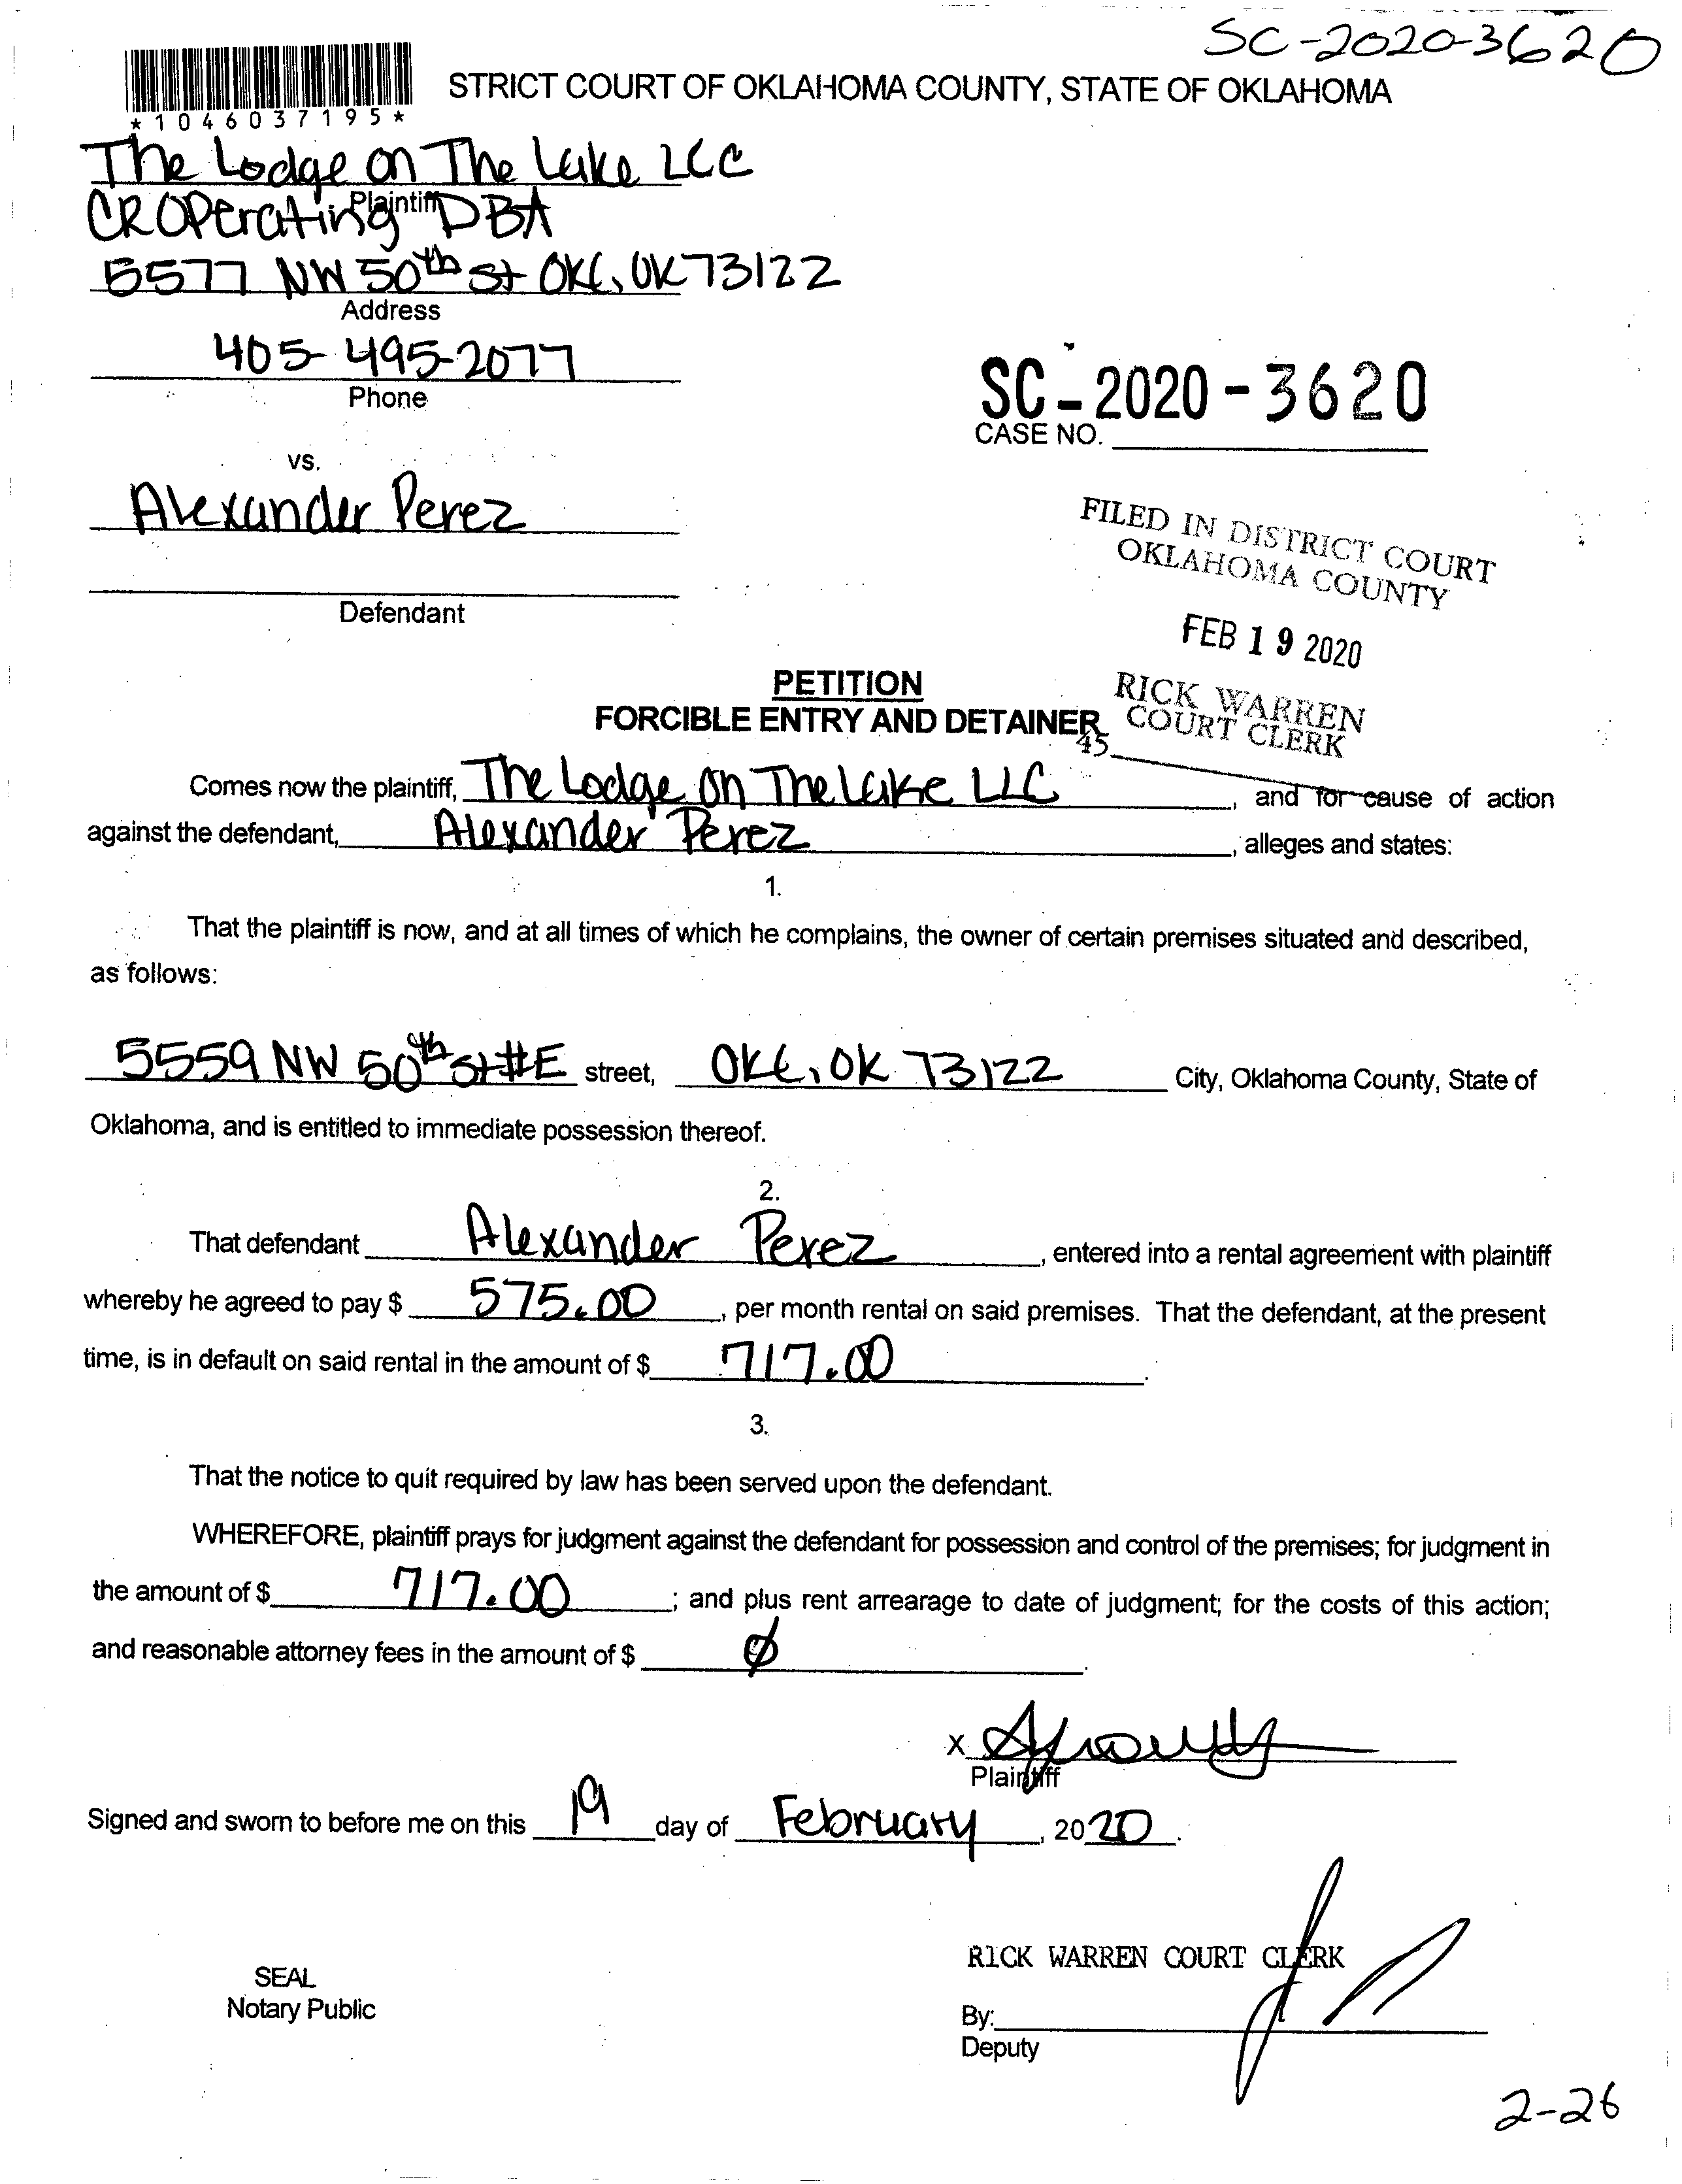 SC-2020-3620
*1046037195*
STRICT COURT OF OKLAHOMA COUNTY, STATE OF OKLAHOMA
The Lodge on The Lake LLC
Plaintiff
CR Operating DBA
5577 NW 50th St OKC, OK 73122
Address
405-495-2077
Phone
SC-2020-3620
CASE NO.
vs.
Alexander Perez
Defendant
FILED IN DISTRICT COURT
OKLAHOMA COUNTY
FEB 19 2020
RICK WARREN
COURT CLERK
45
PETITION
FORCIBLE ENTRY AND DETAINER
Comes now the plaintiff, The Lodge on The Lake LLC, and for cause of action
against the defendant, Alexander Perez, alleges and states:
1.
That the plaintiff is now, and at all times of which he complains, the owner of certain premises situated and described,
as follows:
5559 NW 50th St #E street, OKC, OK 73122 City, Oklahoma County, State of
Oklahoma, and is entitled to immediate possession thereof.
2.
That defendant Alexander Perez, entered into a rental agreement with plaintiff
whereby he agreed to pay $ 575.00, per month rental on said premises. That the defendant, at the present
time, is in default on said rental in the amount of $ 717.00.
3.
That the notice to quit required by law has been served upon the defendant.
WHEREFORE, plaintiff prays for judgment against the defendant for possession and control of the premises; for judgment in
the amount of $ 717.00; and plus rent arrearage to date of judgment; for the costs of this action;
and reasonable attorney fees in the amount of $ ∅.
X
Plaintiff
Signed and sworn to before me on this 19 day of February, 2020.
RICK WARREN COURT CLERK
SEAL
Notary Public
By:
Deputy
2-26